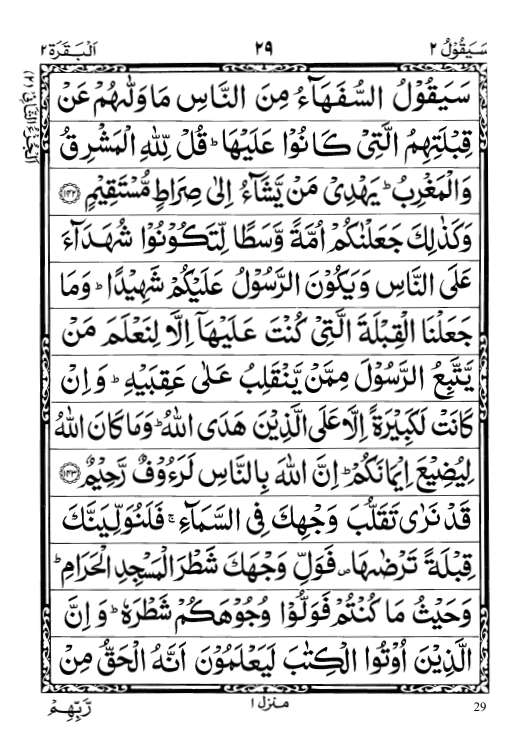 سَيَقُوْلُ ٢
٢٩
اَلْبَقَرَة ٢
اَلْجُزْءُ الثَّانِیْ (٢)
سَيَقُوْلُ السُّفَهَآءُ مِنَ النَّاسِ مَا وَلّٰىهُمْ عَنْ
قِبْلَتِهِمُ الَّتِیْ كَانُوْا عَلَيْهَا ؕ قُلْ لِّلّٰهِ الْمَشْرِقُ
وَالْمَغْرِبُ ؕ يَهْدِیْ مَنْ يَّشَآءُ اِلٰی صِرَاطٍ مُّسْتَقِيْمٍ ﴿١٤٢﴾
وَكَذٰلِكَ جَعَلْنٰكُمْ اُمَّةً وَّسَطًا لِّتَكُوْنُوْا شُهَدَآءَ
عَلَی النَّاسِ وَيَكُوْنَ الرَّسُوْلُ عَلَيْكُمْ شَهِيْدًا ؕ وَمَا
جَعَلْنَا الْقِبْلَةَ الَّتِیْ كُنْتَ عَلَيْهَاۤ اِلَّا لِنَعْلَمَ مَنْ
يَّتَّبِعُ الرَّسُوْلَ مِمَّنْ يَّنْقَلِبُ عَلٰی عَقِبَيْهِ ؕ وَاِنْ
كَانَتْ لَكَبِيْرَةً اِلَّا عَلَی الَّذِيْنَ هَدَی اللّٰهُ ؕ وَمَا كَانَ اللّٰهُ
لِيُضِيْعَ اِيْمَانَكُمْ ؕ اِنَّ اللّٰهَ بِالنَّاسِ لَرَءُوْفٌ رَّحِيْمٌ ﴿١٤٣﴾
قَدْ نَرٰی تَقَلُّبَ وَجْهِكَ فِی السَّمَآءِ ۚ فَلَنُوَلِّيَنَّكَ
قِبْلَةً تَرْضٰىهَا ۪ فَوَلِّ وَجْهَكَ شَطْرَ الْمَسْجِدِ الْحَرَامِ ؕ
وَحَيْثُ مَا كُنْتُمْ فَوَلُّوْا وُجُوْهَكُمْ شَطْرَهٗ ؕ وَاِنَّ
الَّذِيْنَ اُوْتُوا الْكِتٰبَ لَيَعْلَمُوْنَ اَنَّهُ الْحَقُّ مِنْ
رَّبِّهِمْ
منزل ١
29